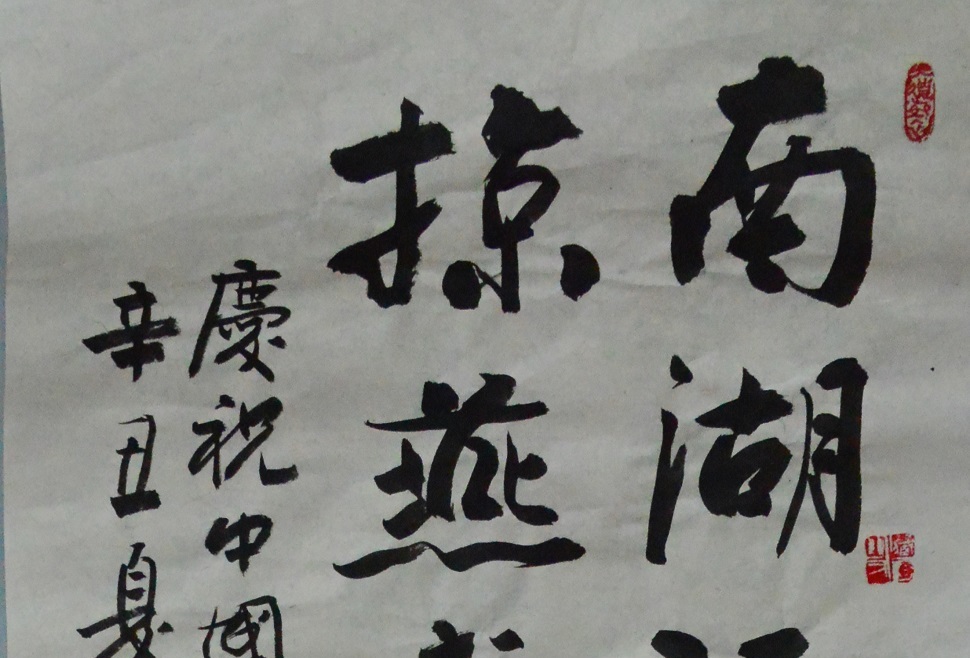 南湖
掠燕
慶祝中國
辛丑夏